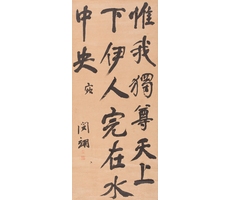 惟我獨尊天上
下伊人完在水
中央 宛